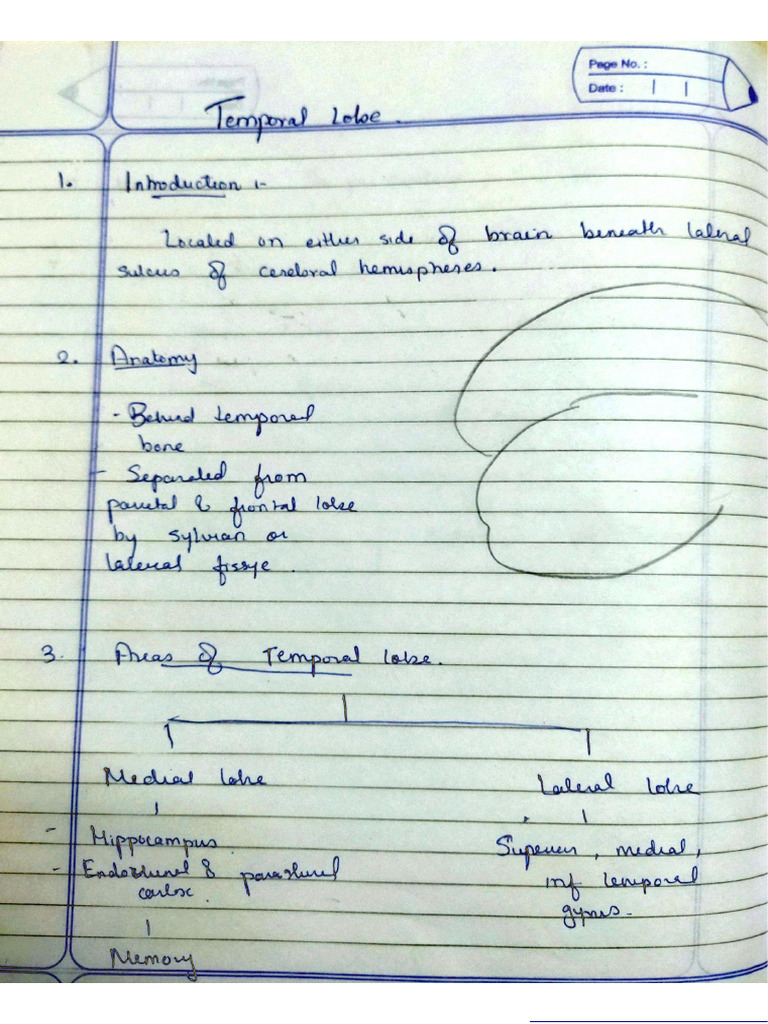 Page No. :
Date :
Temporal Lobe.
1. Introduction :-
Located on either side of brain beneath lateral
sulcus of cerebral hemispheres.
2. Anatomy
- Behind temporal
bone
- Separated from
parietal & frontal lobe
by sylvian or
lateral
3. Areas of Temporal lobe.
Medial lobe
Lateral lobe
- Hippocampus
Superior, medial,
- &
inf temporal
gyrus.
Memory